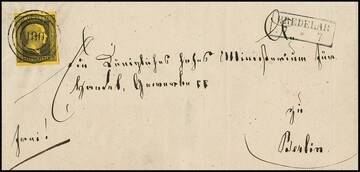 180
BREDELAR
* 7
Ein Königliches hohes Ministerium für
Handel, Gewerbe pp
zu
Berlin.
frei!